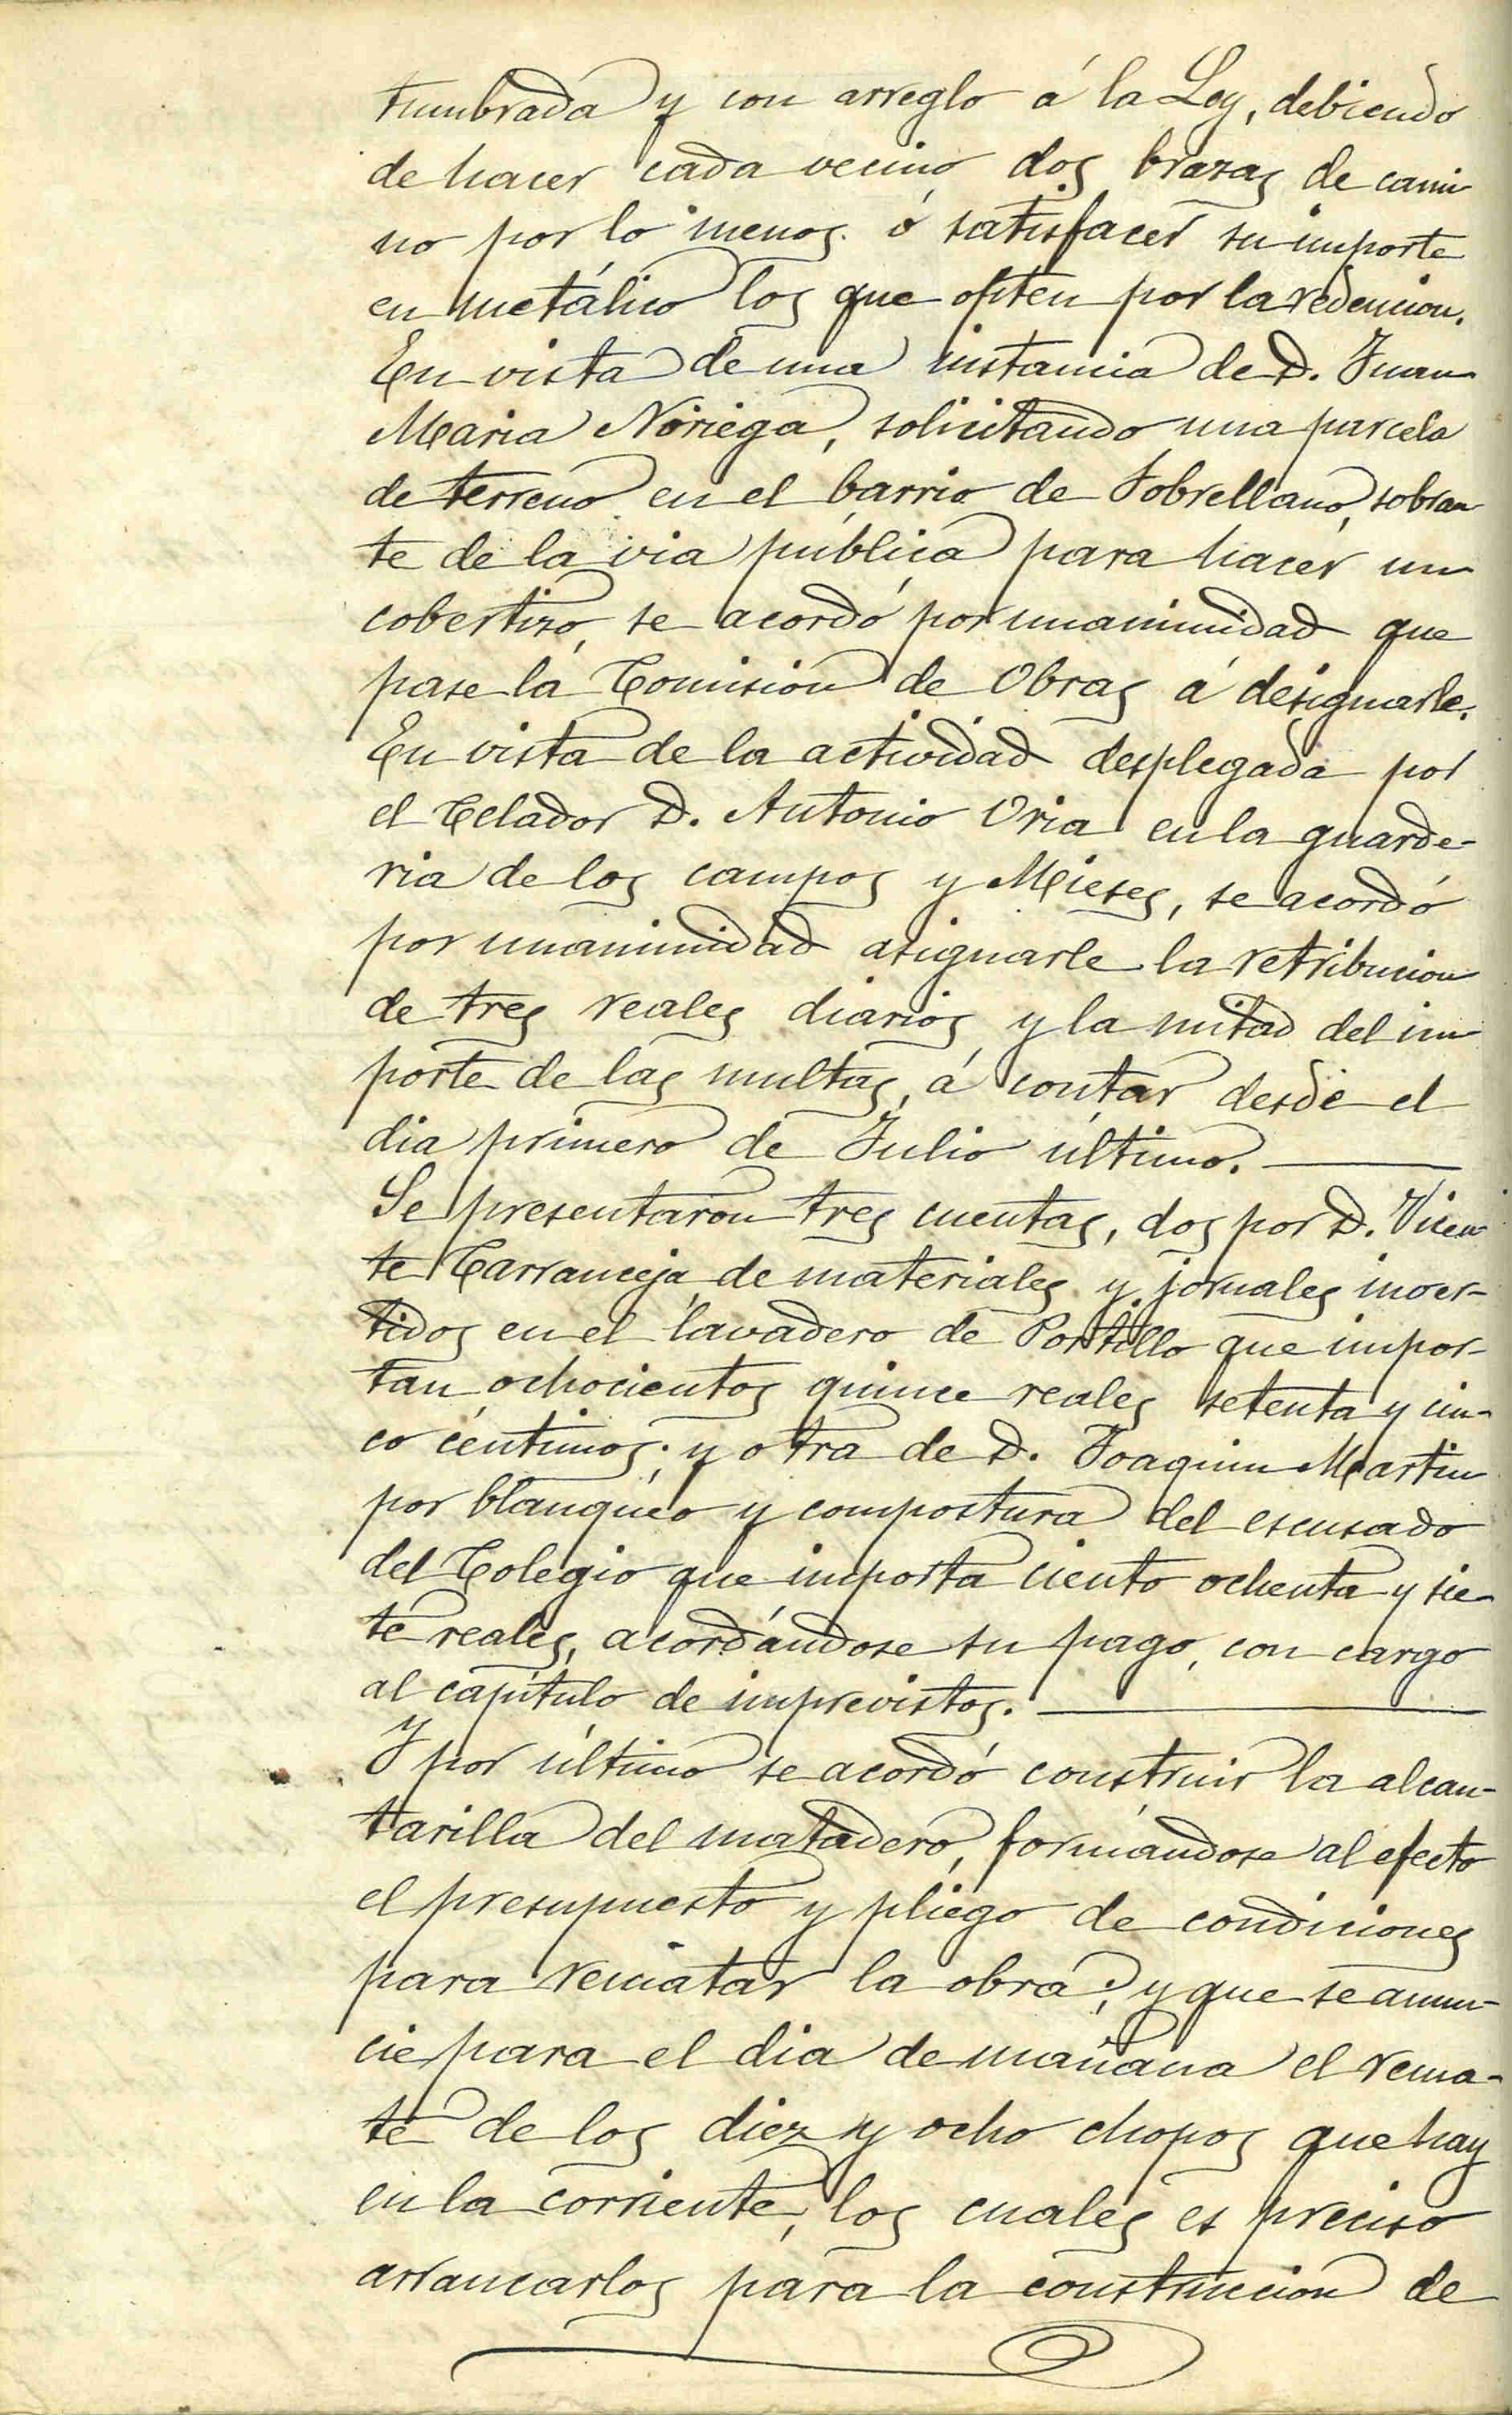 tumbrada y con arreglo á la Ley, debiendo
de hacer cada vecino dos brazas de cami
no por lo menos. ó satisfacer su importe
en metálico los que opten por la redencion.
En vista de una instancia de D. Juan
Maria Noriega, solicitando una parcela
de terreno en el barrio de Sobrellano, sobran
te de la via pública para hacer un
cobertizo, se acordó por unanimidad que
pase la Comision de Obras á designarle.
En vista de la actividad desplegada por
el Celador D. Antonio Oria en la guarde-
ria de los campos y Mieses, se acordó
por unanimidad asignarle la retribucion
de tres reales diarios y la mitad del im
porte de las multas, á contar desde el
dia primero de Julio último.
Se presentaron tres cuentas, dos por D. Vicen
te Carranceja de materiales y jornales inver-
tidos en el lavadero de Portillo que impor-
tan ochocientos quince reales setenta y cin-
co céntimos; y otra de D. Joaquin Martin
por blanquéo y compostura del escusado
del Colegio que importa ciento ochenta y sie-
te reales, acordándose su pago, con cargo
al capítulo de imprevistos.
Y por último se acordó construir la alcan-
tarilla del matadero, formándose al efecto
el presupuesto y pliego de condiciones
para rematar la obra; y que se anun-
cie para el dia de mañana el rema-
te de los diez y ocho chopos que hay
en la corriente, los cuales es preciso
arrancarlos para la construccion de